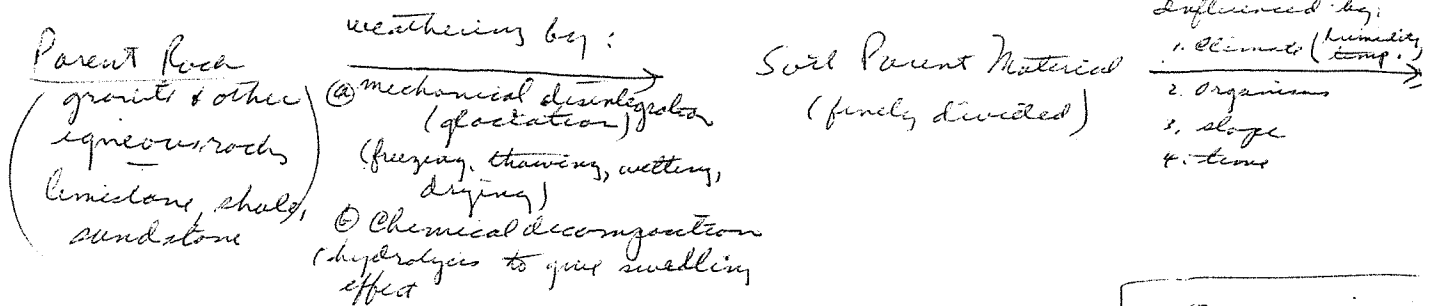 Parent Rock
(granite & other
igneous rocks
limestone, shale,
sandstone)
weathering by:
ⓐ mechanical disintegration
(glaciation)
(freezing, thawing, wetting,
drying)
ⓑ Chemical decomposition
(hydrolysis to give swelling
effect
Soil Parent Material
(finely divided)
Influenced by:
1. Climate (humidity,
temp.)
2. Organisms
3. slope
4. time